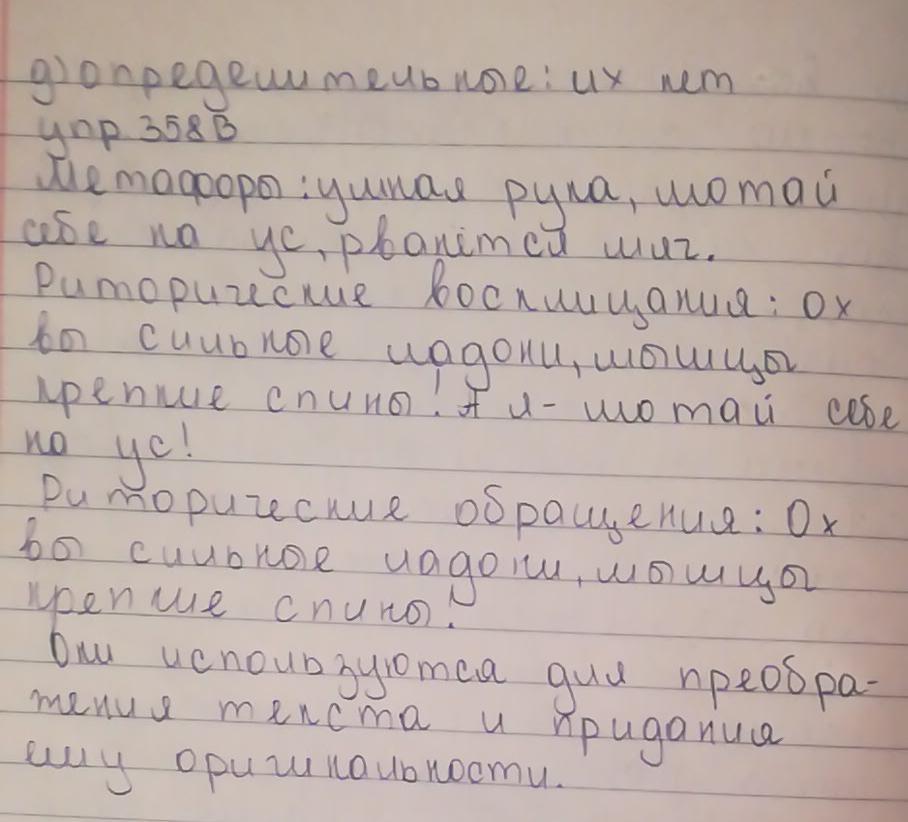 д) определительное: их нет
упр 358В
Метафоры: умная рука, мотай
себе на ус, рванётся миг.
Риторические восклицания: Ох
вы сильные ладони, мышцы
крепкие спины! А я - мотай себе
на ус!
Риторические обращения: Ох
вы сильные ладони, мышцы
крепкие спины!
Они используются для преобра-
жения текста и придания
ему оригинальности.